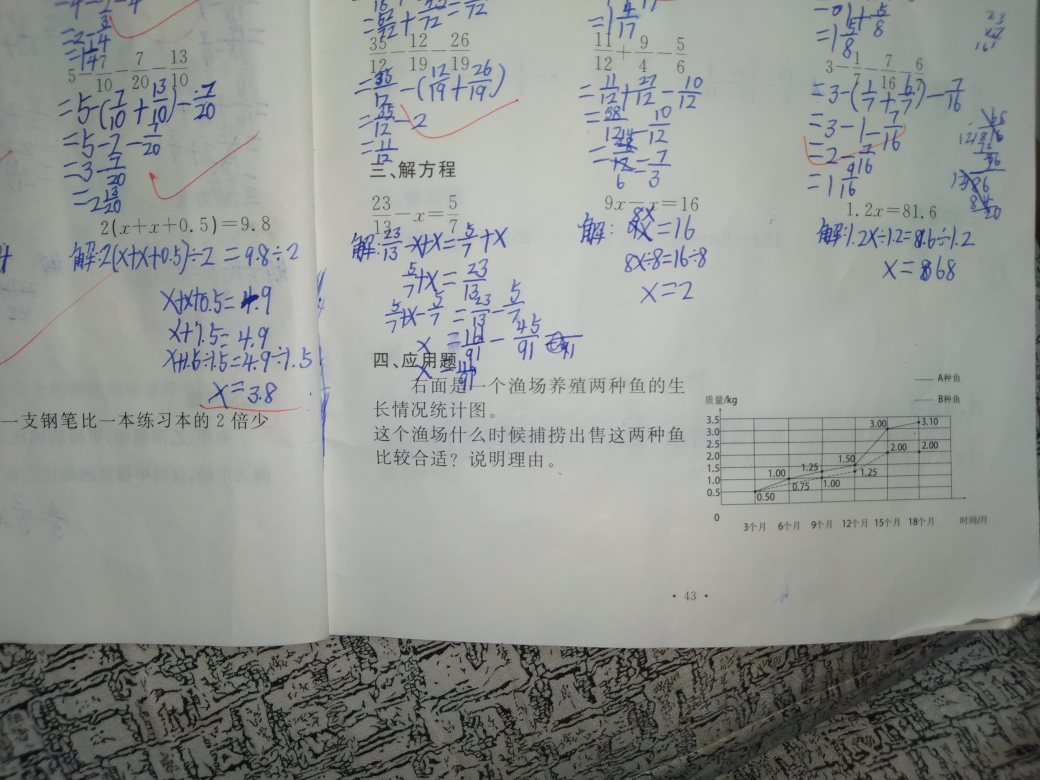 5-7/10-7/20-13/10
=5-(7/10+13/10)-7/20
=5-2-7/20
=3-7/20
=2 13/20
2(x+x+0.5)=9.8
解:2(x+x+0.5)÷2=9.8÷2
x+x+0.5=4.9
x+1.5=4.9
x=3.8
一支钢笔比一本练习本的2倍少
35/12-12/19-26/19
=35/12-(12/19+26/19)
=35/12-2
=11/12
11/12+9/4-5/6
=11/12+27/12-10/12
=38/12-10/12
=1 4/17
=1 5/8
3-1/7-7/16-6/7
=3-(1/7+6/7)-7/16
=3-1-7/16
=2-7/16
=1 9/16
三、解方程
23/13-x=5/7
解:23/13-x+x=5/7+x
5/7+x=23/13
5/7+x-5/7=23/13-5/7
9x-x=16
解:8x=16
8x÷8=16÷8
x=2
1.2x=81.6
解:1.2x÷1.2=81.6÷1.2
x=68
四、应用题
右面是一个渔场养殖两种鱼的生
长情况统计图。
这个渔场什么时候捕捞出售这两种鱼
比较合适?说明理由。
A种鱼
B种鱼
质量/kg
3.5
3.0
2.5
2.0
1.5
1.0
0.5
0
0.50
1.00
0.75
1.25
1.00
1.50
1.25
3.00
2.00
3.10
2.00
3个月 6个月 9个月 12个月 15个月 18个月 时间/月
·43·